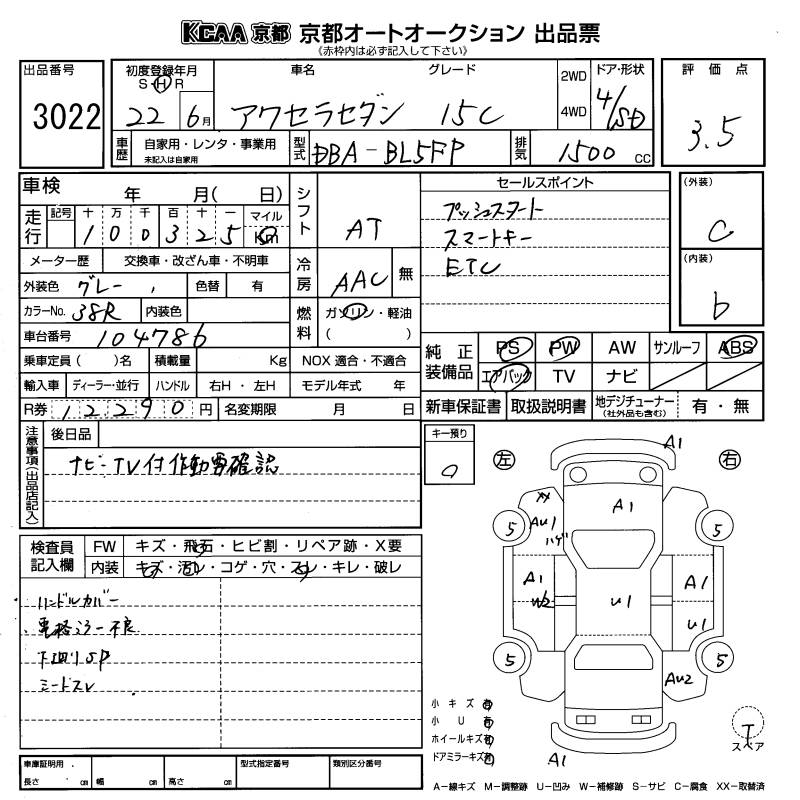 KCAA 京都 京都オートオークション 出品票
《赤枠内は必ず記入して下さい》
出品番号
3022
初度登録年月
S・H・R
22 6月
車名 グレード
アクセラセダン 15C
2WD
4WD
ドア・形状
4/SD
評価点
3.5
車歴
自家用・レンタ・事業用
未記入は自家用
型式
DBA-BL5FP
排気
1500 CC
車検 年 月( 日)
走行
記号 十 万 千 百 十 一 マイル
1 0 0 3 2 5 Km
シフト
AT
メーター歴 交換車・改ざん車・不明車
冷房
AAC 無
外装色 グレー 色替 有
カラーNo. 38R 内装色
燃料
ガソリン・軽油
( )
車台番号 104786
乗車定員( )名 積載量 Kg NOX 適合・不適合
輸入車 ディーラー・並行 ハンドル 右H・左H モデル年式 年
R券 12290円 名変期限 月 日
セールスポイント
プッシュスタート
スマートキー
ETC
(外装)
C
(内装)
b
純正装備品
PS PW AW サンルーフ ABS
エアバック TV ナビ
新車保証書 取扱説明書 地デジチューナー 有・無
(社外品も含む)
注意事項(出品店記入)
後日品
ナビ・TV付作動要確認
キー預り
検査員記入欄
FW キズ・飛石・ヒビ割・リペア跡・X要
内装 キズ・汚レ・コゲ・穴・スレ・キレ・破レ
ハンドルカバー
電格ミラー不良
下廻りSP
シートスレ
左 右
A1
XX
A1
AU1
ハゲ
5 5
A1
W2
U1
A1
U1
5 5
AU2
A1
小キズ有
小U有
ホイールキズ有
ドアミラーキズ有
T
スペア
車庫証明用
長さ cm 幅 cm 高さ cm
型式指定番号
類別区分番号
A-線キズ M-調整跡 U-凹み W-補修跡 S-サビ C-腐食 XX-取替済